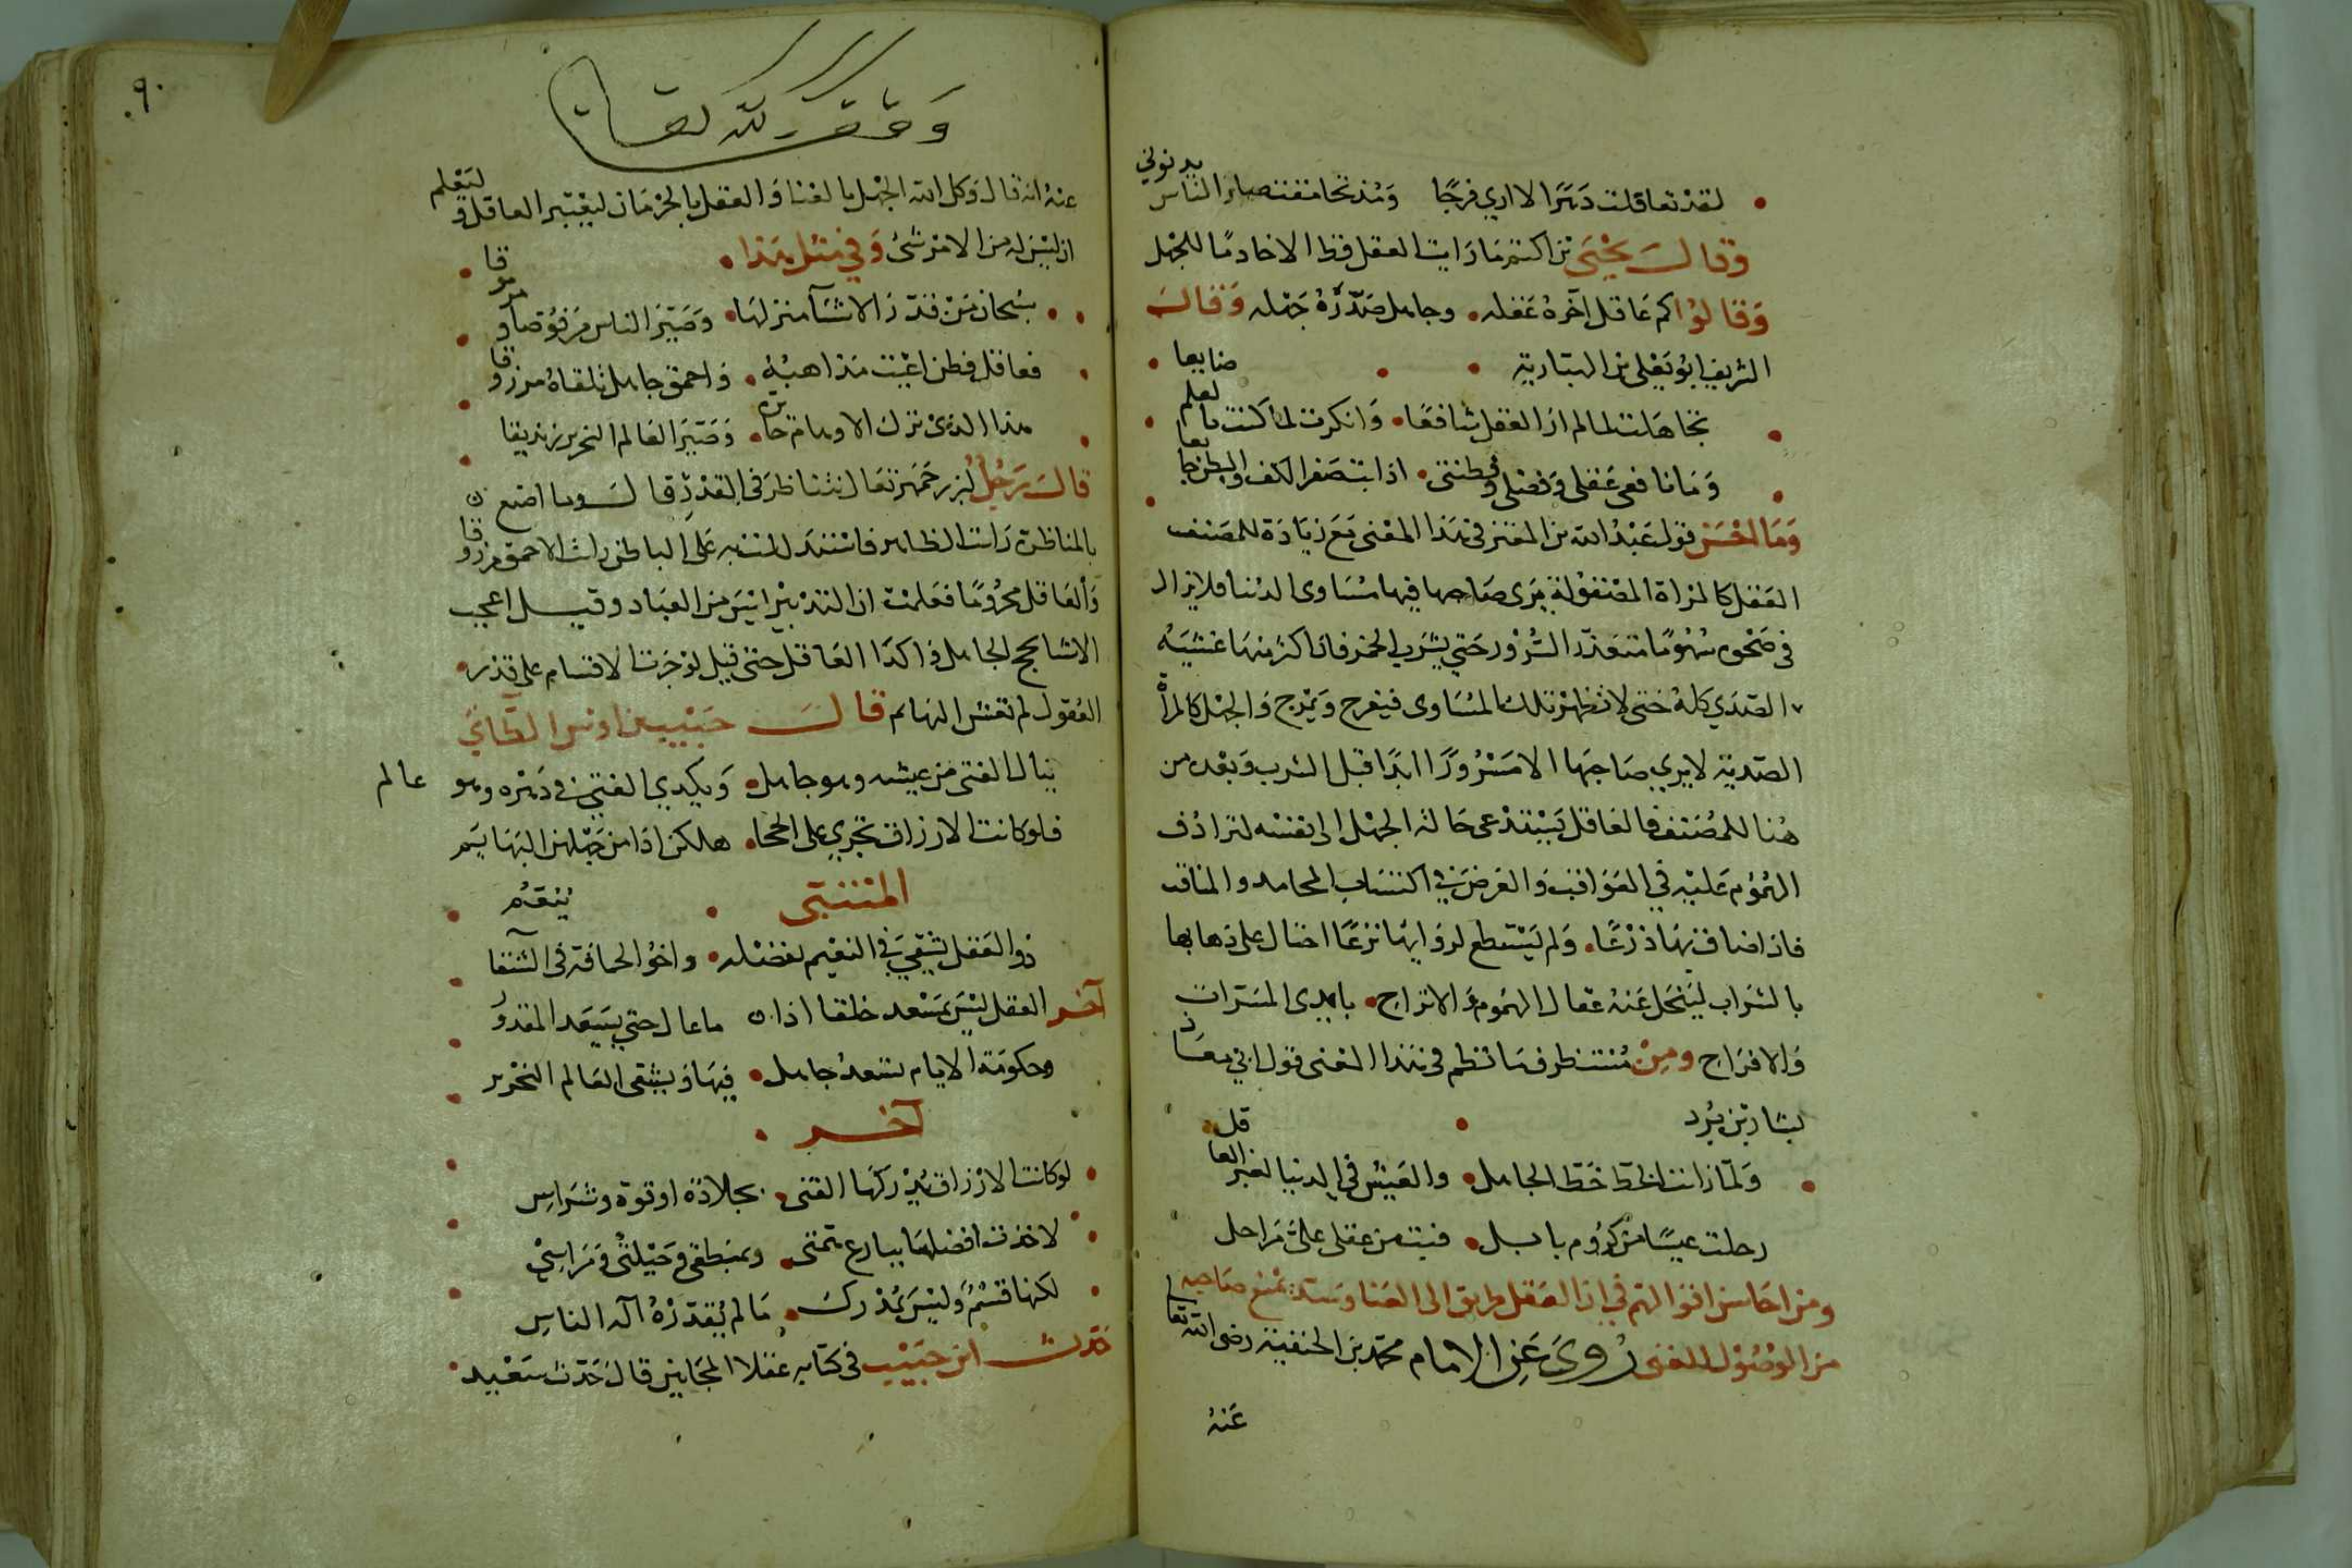 لقد تعاقلت دهرا لا ارى فرجا ومذ تحامقت صار الناس يدنونى
وقال يحيى بن اكثم ما رايت العقل قط الا خادما للجهل
وقالوا كم عاقل اخره عقله وجاهل صدره جهله وقال
الشريف ابو يعلى بن الهبارية
تجاهلت لما لم ار العقل نافعا وانكرت لما كنت بالعلم ضايعا
وما نافعى عقلى وفضلى وفطنتى اذا بت صفر الكف والبطن جايعا
وما احسن قول عبد الله بن المعتز فى هذا المعنى مع زيادة للمصنف
العقل كالمرآة المصقولة يرى صاحبها فيها مساوى الدنيا فلا يزال
فى صحوه مهموما متعذر السرور حتى يشرب الخمر فان اكثر منها غشيه
الصدى كله حتى لا تظهر تلك المساوى فيفرح ويمرح والجهل كالمرآة
الصدية لا يرى صاحبها الا مسرورا ابدا قبل الشرب وبعده من
هنا للمصنف فالعاقل يستدعى حالة الجهل الى نفسه لترادف
الهموم عليه فى العواقب والغرض فى اكتساب المحامد والمناقب
فاذا ضاق بها ذرعا ولم يستطع لروايها نزعا احتال على ذهابها
بالشراب لينحل عنه عقال الهموم والاتراح بايدى المسرات
والافراح ومن مستظرف ما نظم فى هذا المعنى قول ابى معاذ
بشار بن برد
ولما رانت الخط خط الجاهل والعيش فى الدنيا لغير العاقل
رحلت عيسا من كروم بابل فبت من عقلى على مراحل
ومن احاسن اقوالهم فى ان العقل طريق الى العنا وسد يمنع صاحبه
من الوصول للغنى روى عن الامام محمد بن الحنفية رضى الله تعالى
عنه
٩٠
وقف لله تعالى
عنه انه قال وكل الله الجهل بالغنا والعقل بالحرمان ليعتبر العاقل وليعلم
ان ليس له من الامر شئ وفى مثل هذا
سبحان من قدر الاشيا منزلها وصير الناس مرفوضا ومرموقا
فعاقل فطن اعيت مذاهبه واحمق جاهل تلقاه مرزوقا
هذا الذى ترك الاوهام حائرة وصير العالم النحرير زنديقا
قال رجل لبزرجمهر تعال نتناظر فى القدر قال وما اصنع
بالمناظرة رايت الظاهر فاستدللت به على الباطن رايت الاحمق مرزوقا
والعاقل محروما فعلمت ان التدبير ليس من العباد وقيل اعجب
الاشيا نجح الجاهل واكدا العاقل حتى قيل لو جرت الاقسام على قدر
العقول لم تعش البهائم قال حبيب بن اوس الطائى
ينال الفتى من عيشه وهو جاهل ويكدى الفتى فى دهره وهو عالم
فلو كانت الارزاق تجرى على الحجا هلكن اذا من جهلهن البهايم
المتنبى
ذو العقل يشقى فى النعيم بفضله واخو الجهالة فى الشقا ينعم
آخر العقل ليس بمسعد خلقا اذا ما عال حتى يسعد المقدور
وحكومة الايام تسعد جاهل فيها ويشقى العالم النحرير
آخر
لو كانت الارزاق يدركها الفتى بجلادة او قوة وشراس
لاخذت افضلها ببارع همتى وبمنطقى وحيلتى ومراسى
لكنها قسم وليس بمدرك ما لم يقدره اله الناس
حدث ابن حبيب فى كتابه عقلا المجانين قال حدث سعيد